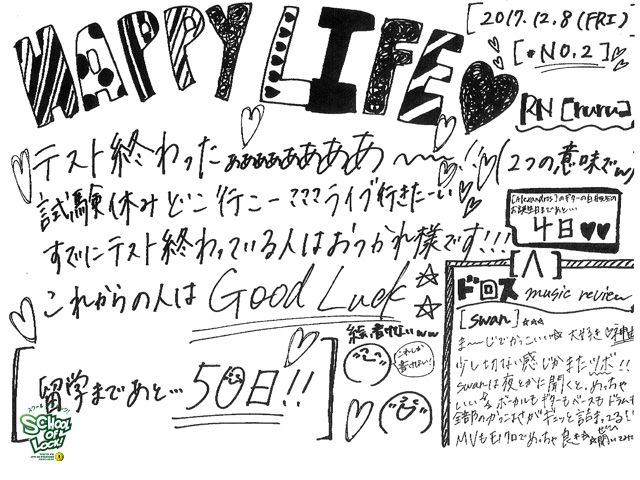 HAPPY LIFE
2017.12.8(FRI)
NO.2
RN [ruru]
テスト終わったぁぁぁぁぁぁぁぁ〜〜!!(2つの意味でw)
試験休みどこ行こーママママライブ行きたーい
すでにテスト終わっている人はおつかれ様です!!!
これからの人は Good Luck
[Alexandros]のギターの白井さんの
お誕生日まであと…
4日
[^]
ドロス music review
[swan]
ま〜じでかっこいい 大好き 神曲
少し切ない感じがまたツボ!!
swanは夜とかに聞くと、めっちゃ
いい ボーカルもギターもベースもドラムも
全部のかっこよさがギュッと詰まってる!!
MVもモノクロでめっちゃ良き ぜひ聞いてみて
絵書けないww
これしか書けない!
留学まであと… 50日!!
スクール オブ ロック!
SCHOOL OF LOCK!